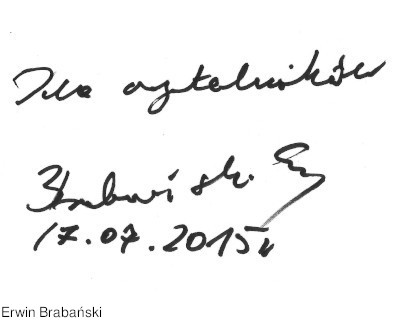 Dla czytelników
Brabański E.
17.07.2015r.
Erwin Brabański